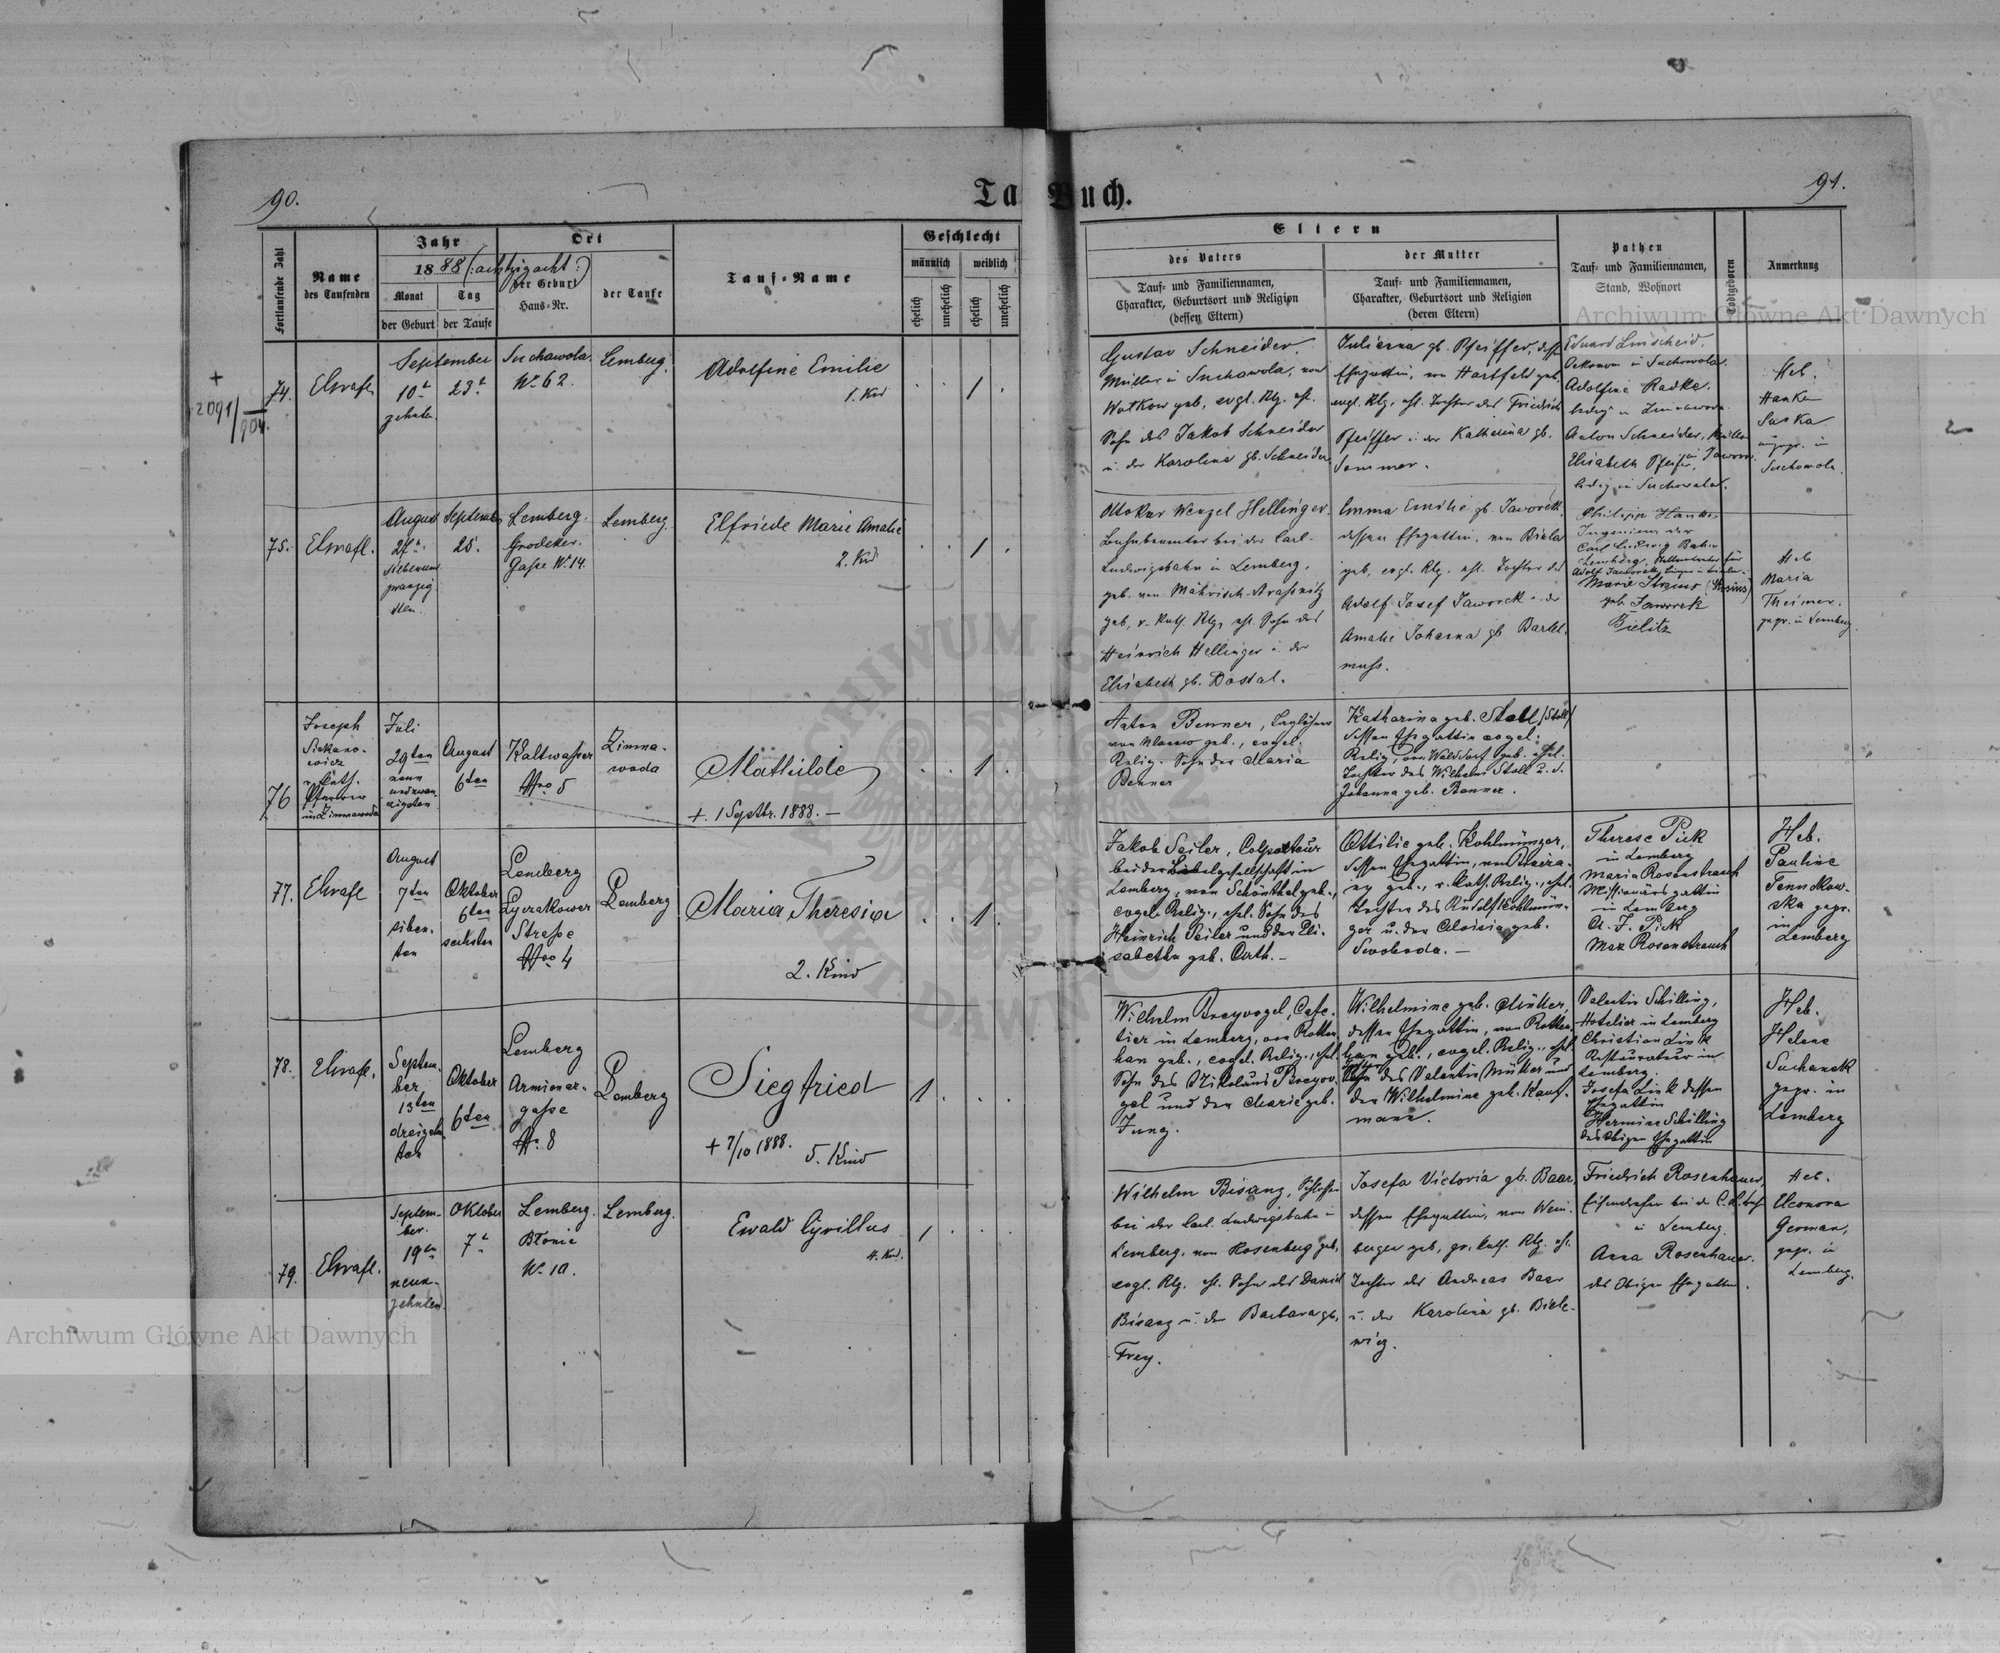 90.
Ta
Buch.
91.
Fortlaufende Zahl
Name
des Taufenden
Jahr
1888 (:achtzigacht:)
Monat
Tag
der Geburt
der Taufe
Ort
der Geburt
Haus=Nr.
der Taufe
Tauf=Name
Geschlecht
männlich
weiblich
ehelich
unehelich
ehelich
unehelich
Eltern
des Vaters
Tauf= und Familiennamen,
Charakter, Geburtsort und Religion
(dessen Eltern)
der Mutter
Tauf= und Familiennamen,
Charakter, Geburtsort und Religion
(deren Eltern)
Pathen
Tauf= und Familiennamen,
Stand, Wohnort
Todtgeboren
Anmerkung
Archiwum Główne Akt Dawnych
+
2091/904.
74.
September
10t
zehnten
23t
Suchowola
No 62.
Lemberg.
Adolfine Emilie
1. Kind
1
Gustav Schneider,
Müller in Suchowola, von
geb., evgl. Rlg. ehl.
Sohn des Jakob Schneider
u. der Karolina gb. Schneider
Juliana gb. Pfeiffer, dess.
Ehegattin, von Hartfeld geb.
evgl. Rlg., ehl. Tochter des Friedrich
Pfeiffer u. der Katharina gb.
Sommer.
Eduard
Oekonom in Suchowola.
Adolfine Radke,
ledig in
Anton Schneider, Müller
Elisabeth Pfeifer,
ledig in Suchowola.
Heb.
Hanka
Saska
in
Suchowola.
75.
August
27t
siebenund
zwanzig
sten.
September
25.
Lemberg.
Grodeker.
Gasse No 14.
Lemberg.
Elfriede Marie Amalie
2. Kind
1
Ottokar Wenzel Hellinger
Bahnbeamter bei der Carl-
Ludwigsbahn in Lemberg,
geb. von Mährisch-
geb, r. kath. Rlg, ehl. Sohn des
Heinrich Hellinger u. der
Elisabeth gb. Dostal.
Emma Emilie gb. Jaworek
dessen Ehegattin, von Biala
geb, evgl. Rlg. ehl. Tochter des
Adolf Josef Jaworek u. der
Amalie Johanna gb Bartel-
muss.
Philipp
Ingenieur der
Carl Ludwig Bahn
Lemberg,
Adolf Jaworek,
Marie
geb. Jaworek
Bielitz
Heb
Maria
Theimer.
gepr. in Lemberg.
76
Joseph
Siekano-
wicz
r. kath.
Pfarrer
in Zimnawoda
Juli
29ten
neun
undzwan
zigsten
August
6ten
Kaltwasser
Nro 5
Zimna-
woda
Mathilde
+. 1 Septbr. 1888. —
1
Anton Benner, Taglöhner
von geb., evgel.
Relig. Sohn der Maria
Benner
Katharina geb. Stall /Stoll/
dessen Ehegattin evgel.
Relig, von Walddorf geb. ehel.
Tochter des Wilhelm Stoll u. d.
Johanna geb. Benner.
77.
August
7ten
sieben-
ten
Oktober
6ten
sechsten
Lemberg
Lyczakower
Strasse
Nro 4
Lemberg
Maria Theresia
2. Kind
1
Jakob Seiler, Colporteur
bei der Bibelgesellschaft in
Lemberg, von Schönthal geb.,
evgel. Relig., ehel. Sohn des
Heinrich Seiler und der Eli-
sabetha geb. Orth. —
Ottilie geb. Kohlmünzer,
dessen Ehegattin, von
geb., r. kath. Relig., ehel.
Tochter des Rudolf Kohlmün-
zer u. der Aloisia geb.
Swoboda. —
Therese Pick
in Lemberg
Maria Rosenstrauch
Missionärs gattin
in Lemberg
A. J. Pick
Max Rosenstrauch
Heb.
Pauline
ska gepr.
in
Lemberg
78.
Septem-
ber
13ten
dreizehn
ten
Oktober
6ten
Lemberg
Armener-
gasse
Nr. 8
Lemberg
Siegfried
+ 7/10 1888.
5. Kind
1
Wilhelm Breyvogel, Cafe-
tier in Lemberg, von Rotten
han geb., evgel. Relig., ehel.
Sohn des Nikolaus Breyvo-
gel und der Marie geb.
Jung.
Wilhelmine geb. Müller,
dessen Ehegattin, von Rotten-
han geb., evgel. Relig., ehel.
des Valentin Müller und
der Wilhelmine geb. Kauf-
mann.
Valentin Schilling,
Hotelier in Lemberg
Christian Link
Restaurateur in
Lemberg.
Josefa Link dessen
Ehegattin
Hermine Schilling
des obigen Ehegattin
Heb.
Helene
Suchanek
gepr. in
Lemberg
79.
Septem-
ber.
19ten
neun-
zehnten.
Oktober
7t
Lemberg.
Błonie
No 10.
Lemberg.
Ewald Cyrillus
4. Kind.
1
Wilhelm Bisanz, Schlosser
bei der Carl Ludwigsbahn in
Lemberg, von Rosenberg geb,
evgl. Rlg. ehl. Sohn des Daniel
Bisanz u. der Barbara gb,
Frey.
Josefa Victoria gb. Baar,
dessen Ehegattin, von Wein-
bergen geb, gr. kath. Rlg. ehl.
Tochter des Andreas Baar
u. der Karolina gb. Biele-
wicz.
Friedrich Rosenhauer,
Eisendreher bei der C. L. Bahn
in Lemberg
Anna Rosenhauer.
des Obigen Ehegattin.
Heb.
Eleonora
German,
gepr. in
Lemberg.
Archiwum Główne Akt Dawnych